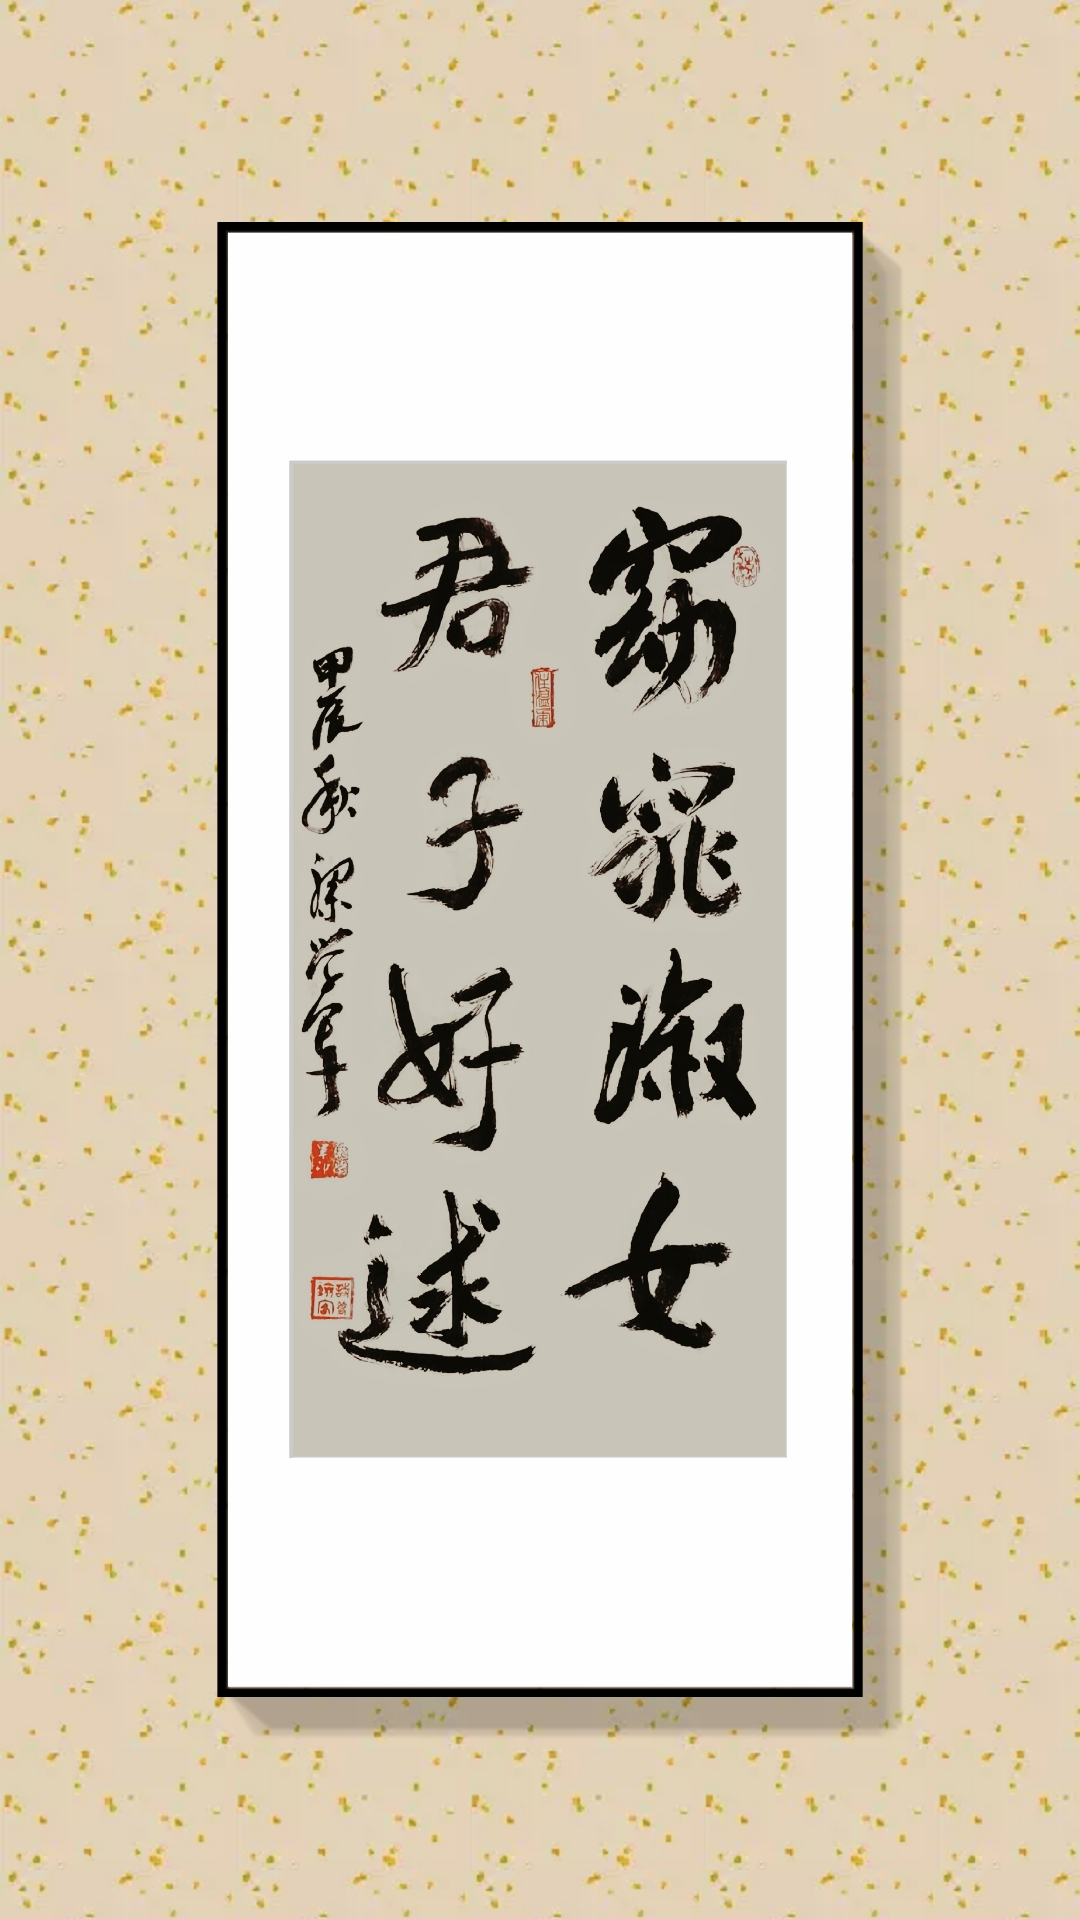 窈窕淑女
君子好逑
甲辰秋梁学军